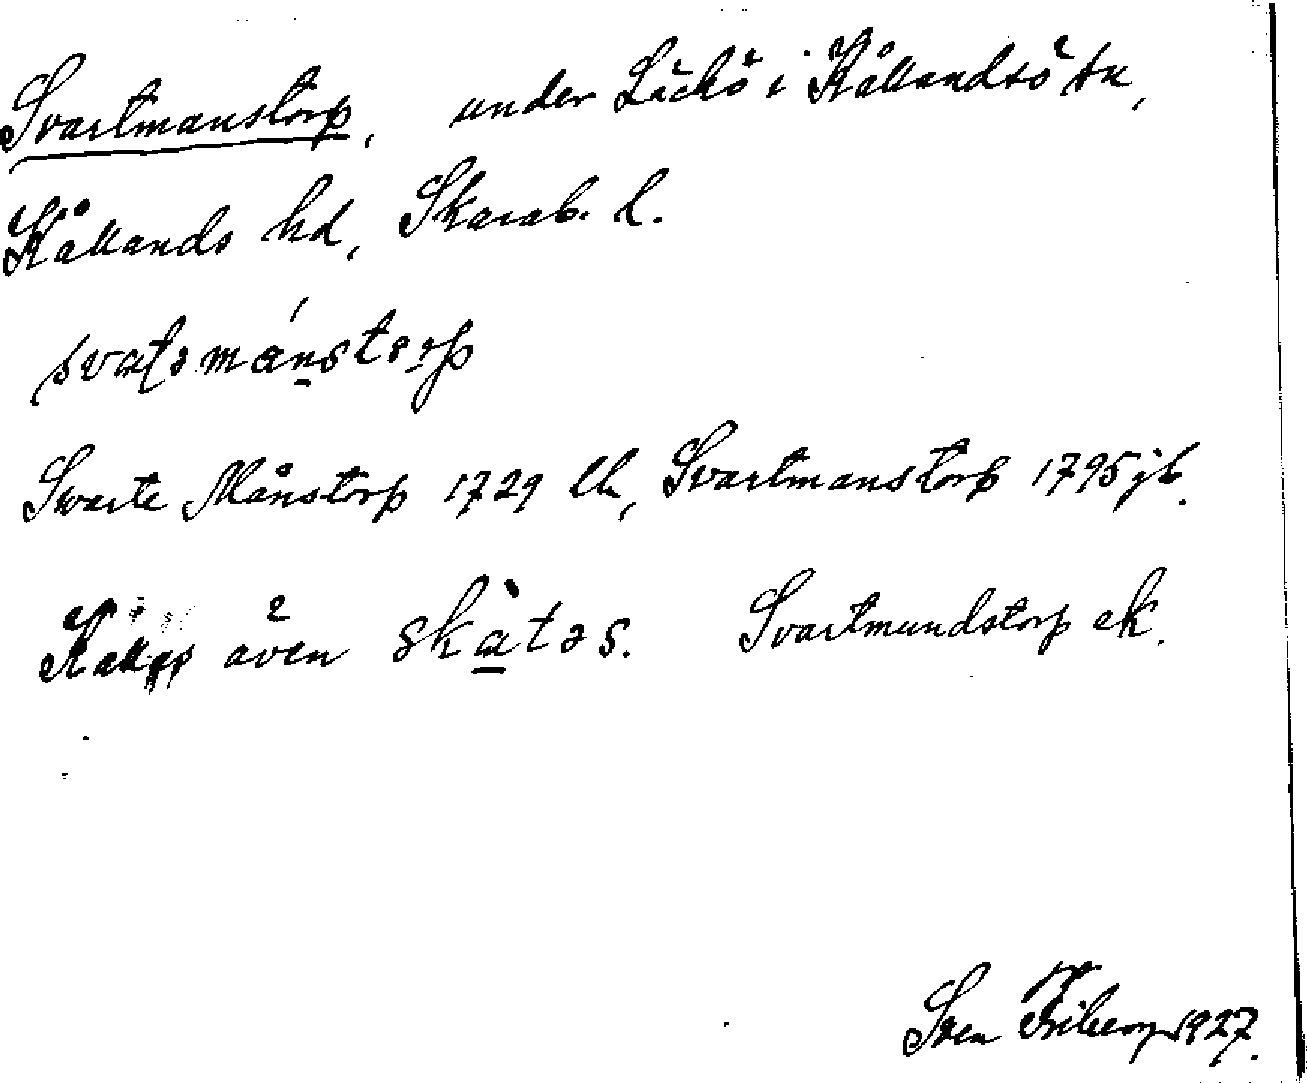 Svartmanstorp, under Läckö i Kållandsö sn,
Kållands hd, Skarab. l.
svatəmánstorp
Svarte Månstorp 1729 lk, Svartmanstorp 1795 jb.
Kallas även skàtəs. Svartmundstorp ek.
Sven Friberg 1927.